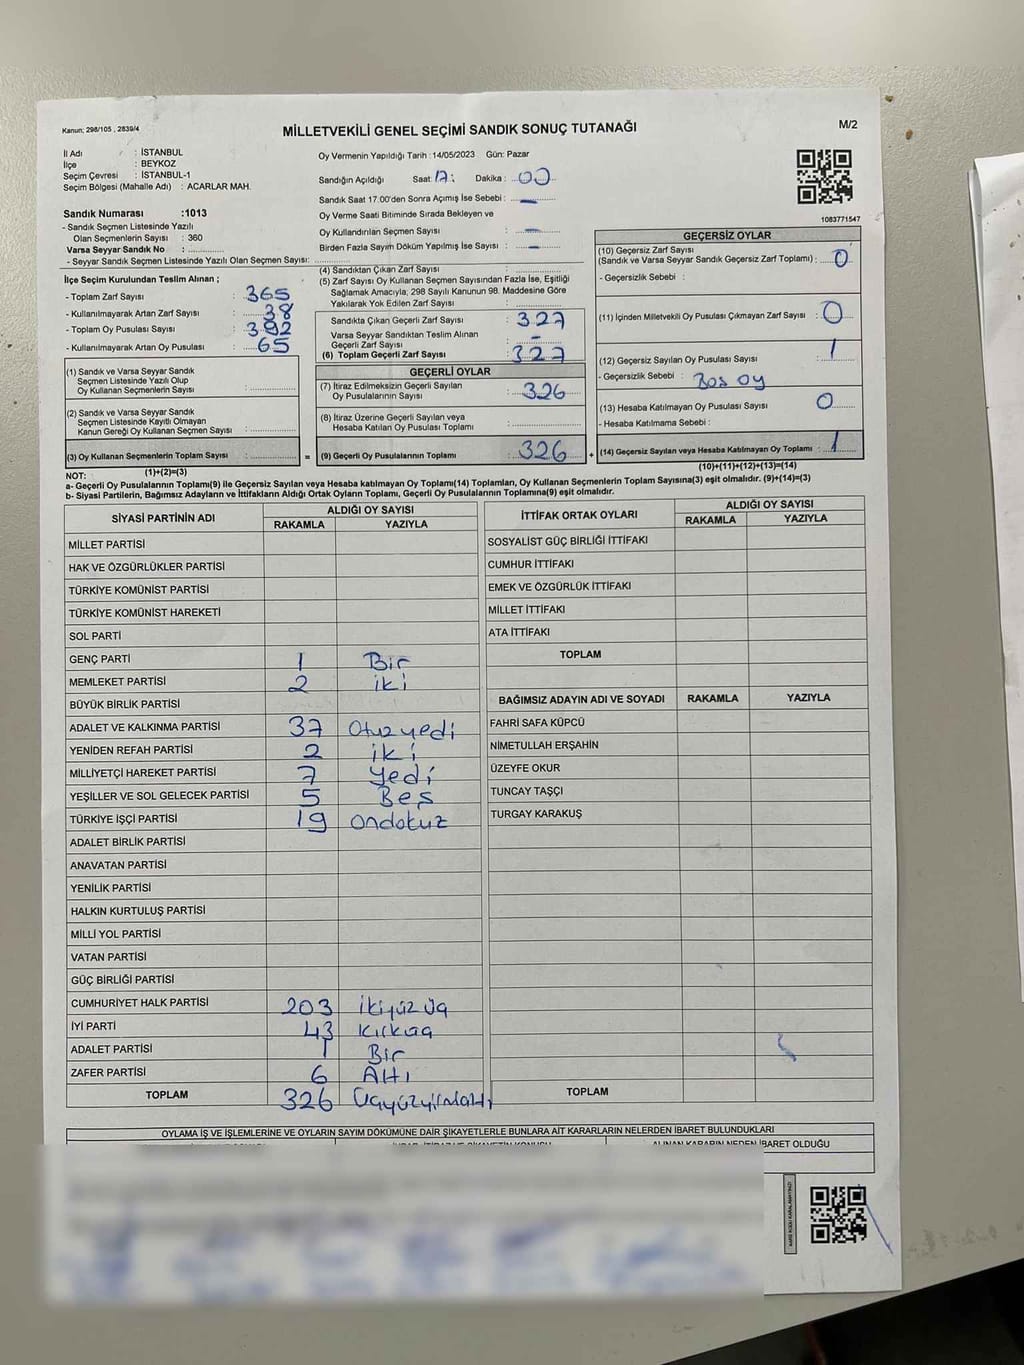 Kanun; 298/105 , 2839/4
MİLLETVEKİLİ GENEL SEÇİMİ SANDIK SONUÇ TUTANAĞI
M/2
İl Adı : İSTANBUL
İlçe : BEYKOZ
Seçim Çevresi : İSTANBUL-1
Seçim Bölgesi (Mahalle Adı) : ACARLAR MAH.
Sandık Numarası :1013
- Sandık Seçmen Listesinde Yazılı
Olan Seçmenlerin Sayısı : 360
Varsa Seyyar Sandık No :
- Seyyar Sandık Seçmen Listesinde Yazılı Olan Seçmen Sayısı:
Oy Vermenin Yapıldığı Tarih :14/05/2023 Gün: Pazar
Sandığın Açıldığı Saat: 17: Dakika : 00
Sandık Saat 17.00'den Sonra Açımış İse Sebebi : -
Oy Verme Saati Bitiminde Sırada Bekleyen ve
Oy Kullandırılan Seçmen Sayısı : -
Birden Fazla Sayım Döküm Yapılmış İse Sayısı : -
1083771547
İlçe Seçim Kurulundan Teslim Alınan ;
- Toplam Zarf Sayısı : 365
- Kullanılmayarak Artan Zarf Sayısı : 38
- Toplam Oy Pusulası Sayısı : 392
- Kullanılmayarak Artan Oy Pusulası : 65
(1) Sandık ve Varsa Seyyar Sandık
Seçmen Listesinde Yazılı Olup
Oy Kullanan Seçmenlerin Sayısı :
(2) Sandık ve Varsa Seyyar Sandık
Seçmen Listesinde Kayıtlı Olmayan
Kanun Gereği Oy Kullanan Seçmen Sayısı :
(3) Oy Kullanan Seçmenlerin Toplam Sayısı :
(1)+(2)=(3)
(4) Sandıktan Çıkan Zarf Sayısı :
(5) Zarf Sayısı Oy Kullanan Seçmen Sayısından Fazla İse, Eşitliği
Sağlamak Amacıyla, 298 Sayılı Kanunun 98. Maddesine Göre
Yakılarak Yok Edilen Zarf Sayısı :
Sandıkta Çıkan Geçerli Zarf Sayısı : 327
Varsa Seyyar Sandıktan Teslim Alınan
Geçerli Zarf Sayısı : -
(6) Toplam Geçerli Zarf Sayısı : 327
GEÇERLİ OYLAR
(7) İtiraz Edilmeksizin Geçerli Sayılan
Oy Pusulalarının Sayısı : 326
(8) İtiraz Üzerine Geçerli Sayılan veya
Hesaba Katılan Oy Pusulası Toplamı :
= (9) Geçerli Oy Pusulalarının Toplamı : 326 +
GEÇERSİZ OYLAR
(10) Geçersiz Zarf Sayısı
(Sandık ve Varsa Seyyar Sandık Geçersiz Zarf Toplamı) : 0
- Geçersizlik Sebebi :
(11) İçinden Milletvekili Oy Pusulası Çıkmayan Zarf Sayısı : 0
(12) Geçersiz Sayılan Oy Pusulası Sayısı : 1
- Geçersizlik Sebebi : Boş oy
(13) Hesaba Katılmayan Oy Pusulası Sayısı : 0
- Hesaba Katılmama Sebebi :
(14) Geçersiz Sayılan veya Hesaba Katılmayan Oy Toplamı : 1
(10)+(11)+(12)+(13)=(14)
NOT:
a- Geçerli Oy Pusulalarının Toplamı(9) ile Geçersiz Sayılan veya Hesaba katılmayan Oy Toplamı(14) Toplamları, Oy Kullanan Seçmenlerin Toplam Sayısına(3) eşit olmalıdır. (9)+(14)=(3)
b- Siyasi Partilerin, Bağımsız Adayların ve İttifakların Aldığı Ortak Oyların Toplamı, Geçerli Oy Pusulalarının Toplamına(9) eşit olmalıdır.
SİYASİ PARTİNİN ADI ALDIĞI OY SAYISI
RAKAMLA YAZIYLA
MİLLET PARTİSİ
HAK VE ÖZGÜRLÜKLER PARTİSİ
TÜRKİYE KOMÜNİST PARTİSİ
TÜRKİYE KOMÜNİST HAREKETİ
SOL PARTİ
GENÇ PARTİ 1 Bir
MEMLEKET PARTİSİ 2 iki
BÜYÜK BİRLİK PARTİSİ
ADALET VE KALKINMA PARTİSİ 37 Otuzyedi
YENİDEN REFAH PARTİSİ 2 iki
MİLLİYETÇİ HAREKET PARTİSİ 7 Yedi
YEŞİLLER VE SOL GELECEK PARTİSİ 5 Beş
TÜRKİYE İŞÇİ PARTİSİ 19 ondokuz
ADALET BİRLİK PARTİSİ
ANAVATAN PARTİSİ
YENİLİK PARTİSİ
HALKIN KURTULUŞ PARTİSİ
MİLLİ YOL PARTİSİ
VATAN PARTİSİ
GÜÇ BİRLİĞİ PARTİSİ
CUMHURİYET HALK PARTİSİ 203 ikiyüz üç
İYİ PARTİ 43 kırküç
ADALET PARTİSİ 1 Bir
ZAFER PARTİSİ 6 Altı
TOPLAM 326 Üçyüzyirmialtı
İTTİFAK ORTAK OYLARI ALDIĞI OY SAYISI
RAKAMLA YAZIYLA
SOSYALİST GÜÇ BİRLİĞİ İTTİFAKI
CUMHUR İTTİFAKI
EMEK VE ÖZGÜRLÜK İTTİFAKI
MİLLET İTTİFAKI
ATA İTTİFAKI
TOPLAM
BAĞIMSIZ ADAYIN ADI VE SOYADI RAKAMLA YAZIYLA
FAHRİ SAFA KÜPCÜ
NİMETULLAH ERŞAHİN
ÜZEYFE OKUR
TUNCAY TAŞÇI
TURGAY KARAKUŞ
TOPLAM
OYLAMA İŞ VE İŞLEMLERİNE VE OYLARIN SAYIM DÖKÜMÜNE DAİR ŞİKAYETLERLE BUNLARA AİT KARARLARIN NELERDEN İBARET BULUNDUKLARI
ALINAN KARARIN NEDEN İBARET OLDUĞU